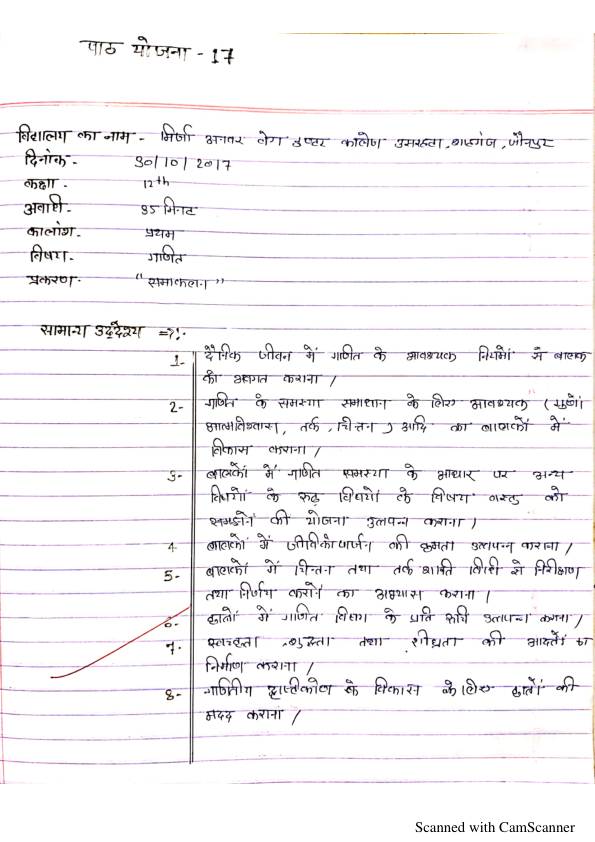 पाठ योजना - 17
विद्यालय का नाम - मिर्जा अनवर बेग इण्टर कालेज उमरहता, शाहगंज, जौनपुर
दिनांक - 30/10/2017
कक्षा - 12th
अवधि - 35 मिनट
कालांश - प्रथम
विषय - गणित
प्रकरण - "समाकलन"
सामान्य उद्देश्य =>:-
1- दैनिक जीवन में गणित के आवश्यक नियमों से बालक
को अवगत कराना /
2- गणित के समस्या समाधान के लिए आवश्यक (गुणों
आत्मविश्वास, तर्क, चिन्तन) आदि का बालकों में
विकास कराना /
3- बालकों में गणित समस्या के आधार पर अन्य
विषयों के रूढ़ विषयों के विषय वस्तु को
समझने की योजना उत्पन्न कराना /
4- बालकों में जीविकोपार्जन की क्षमता उत्पन्न कराना /
5- बालकों में चिन्तन तथा तर्क शक्ति विधि से निरीक्षण
तथा निर्णय करने का अभ्यास कराना /
6- छात्रों में गणित विषय के प्रति रूचि उत्पन्न कराना /
7- स्वच्छता, शुद्धता तथा शीघ्रता की आदतों का
निर्माण कराना /
8- गणितीय दृष्टिकोण के विकास के लिए छात्रों की
मदद कराना /
Scanned with CamScanner